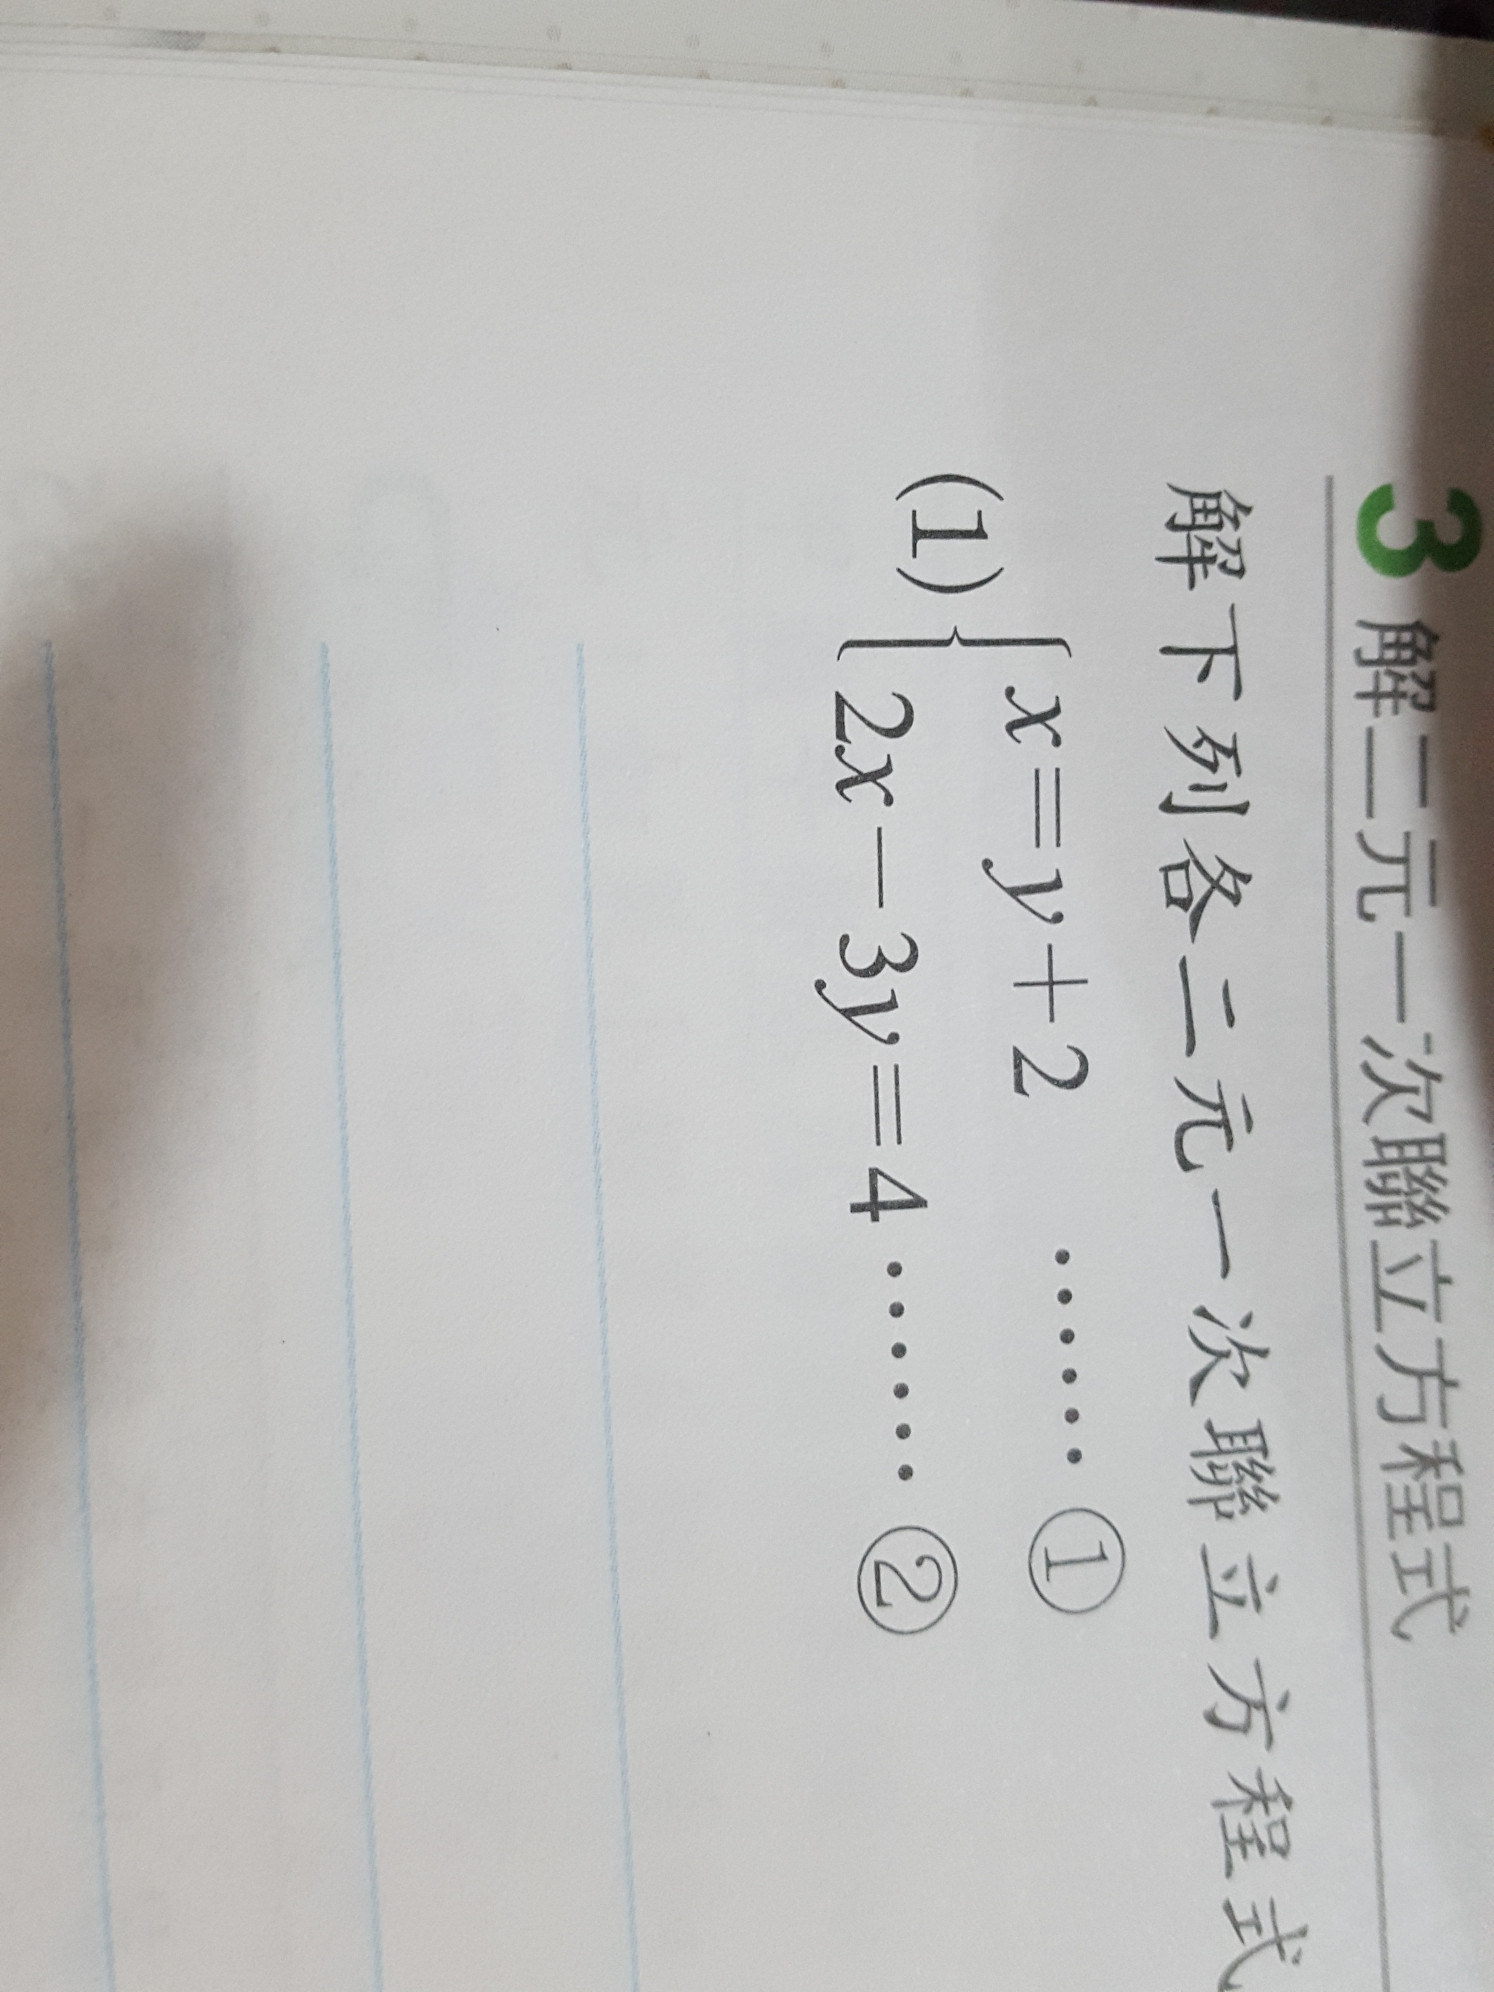 3 解二元一次聯立方程式
解下列各二元一次聯立方程式
(1) { x=y+2 ……①
2x-3y=4 ……②